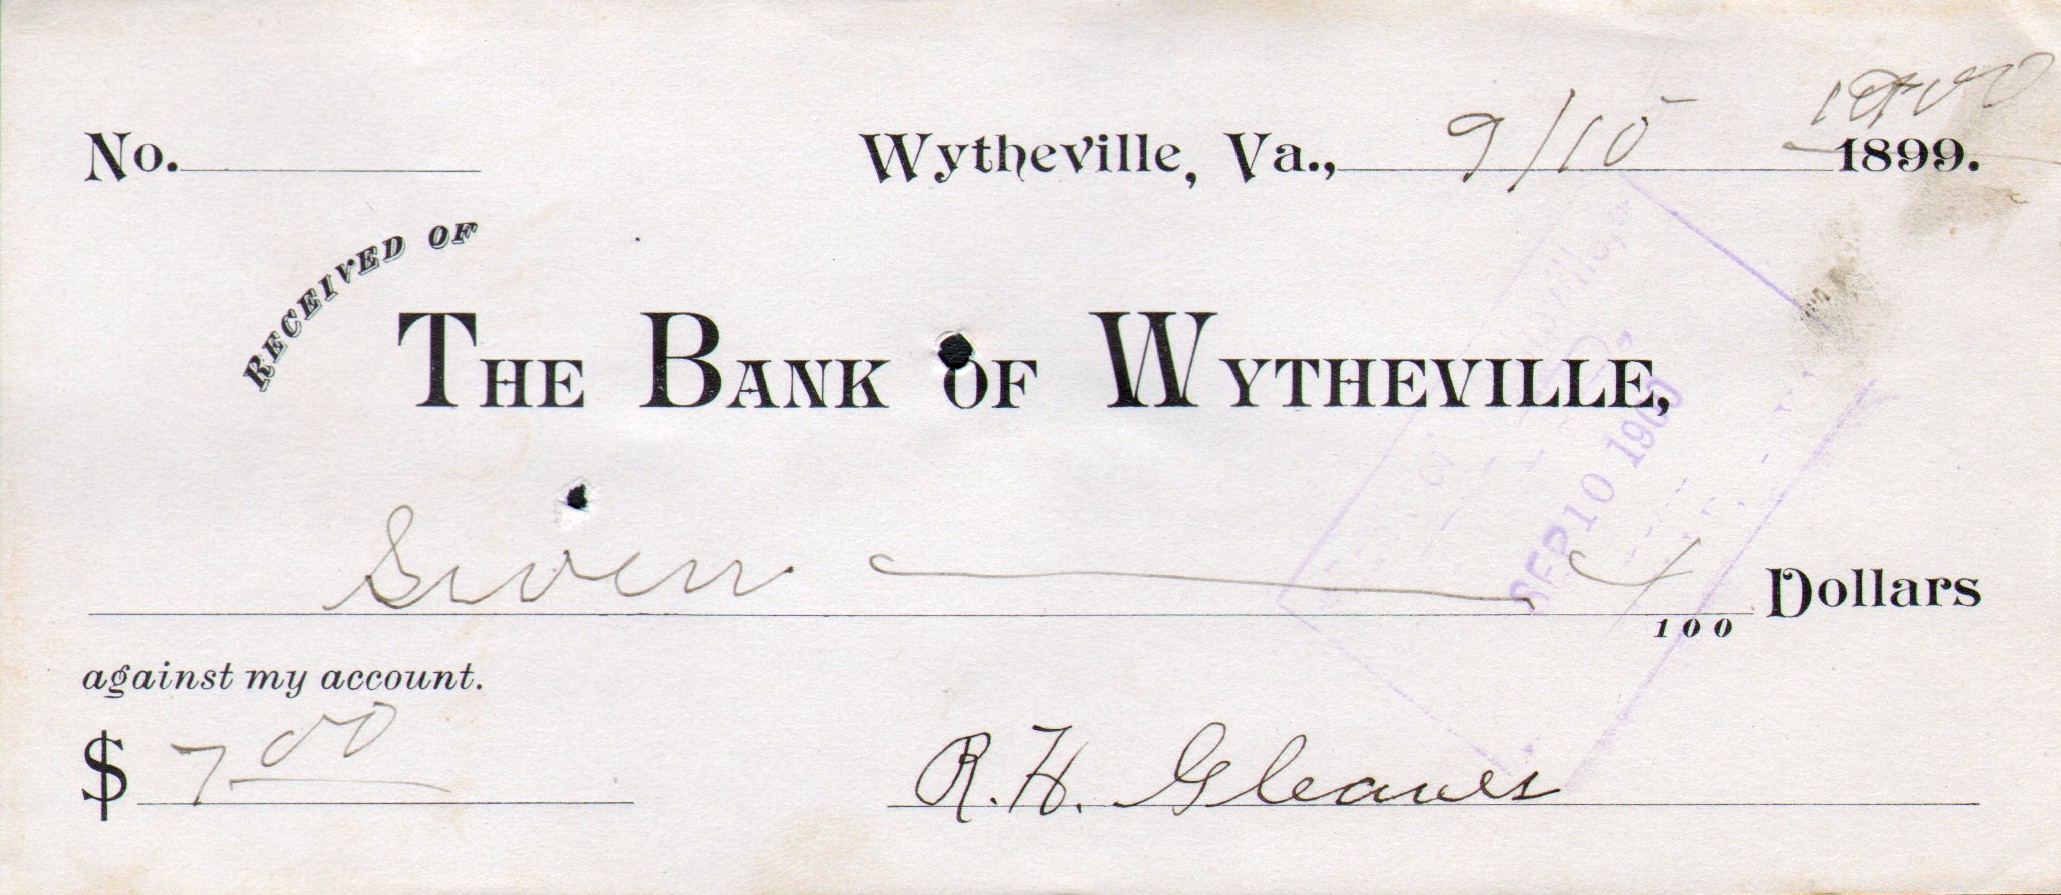 No. Wytheville, Va., 9/10 1900 1899.
RECEIVED OF
THE BANK OF WYTHEVILLE,
SEP 10 1900
Seven 100 Dollars
against my account.
$ 7 00 R. H. Gleaves